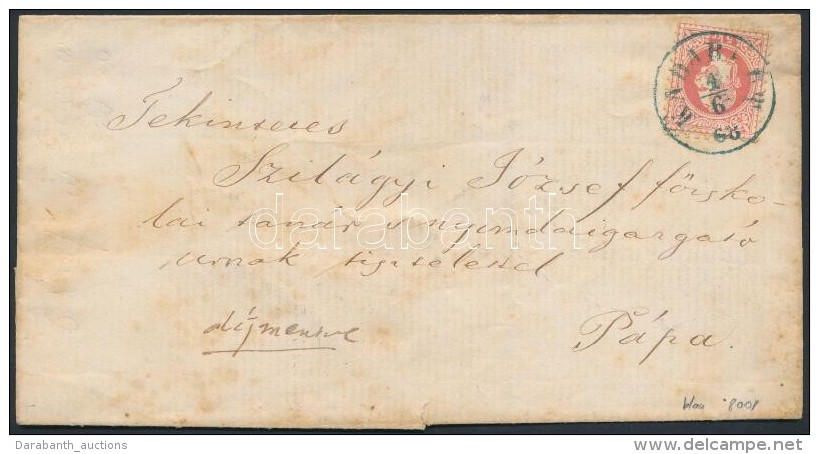 4
6
68
Tekintetes
Szilágyi József főisko-
lai tanár s nyomdaigazgató
urnak tisztelettel
díjmentve
Pápa.
darabanth
Darabanth_auctions
www.delcampe.net